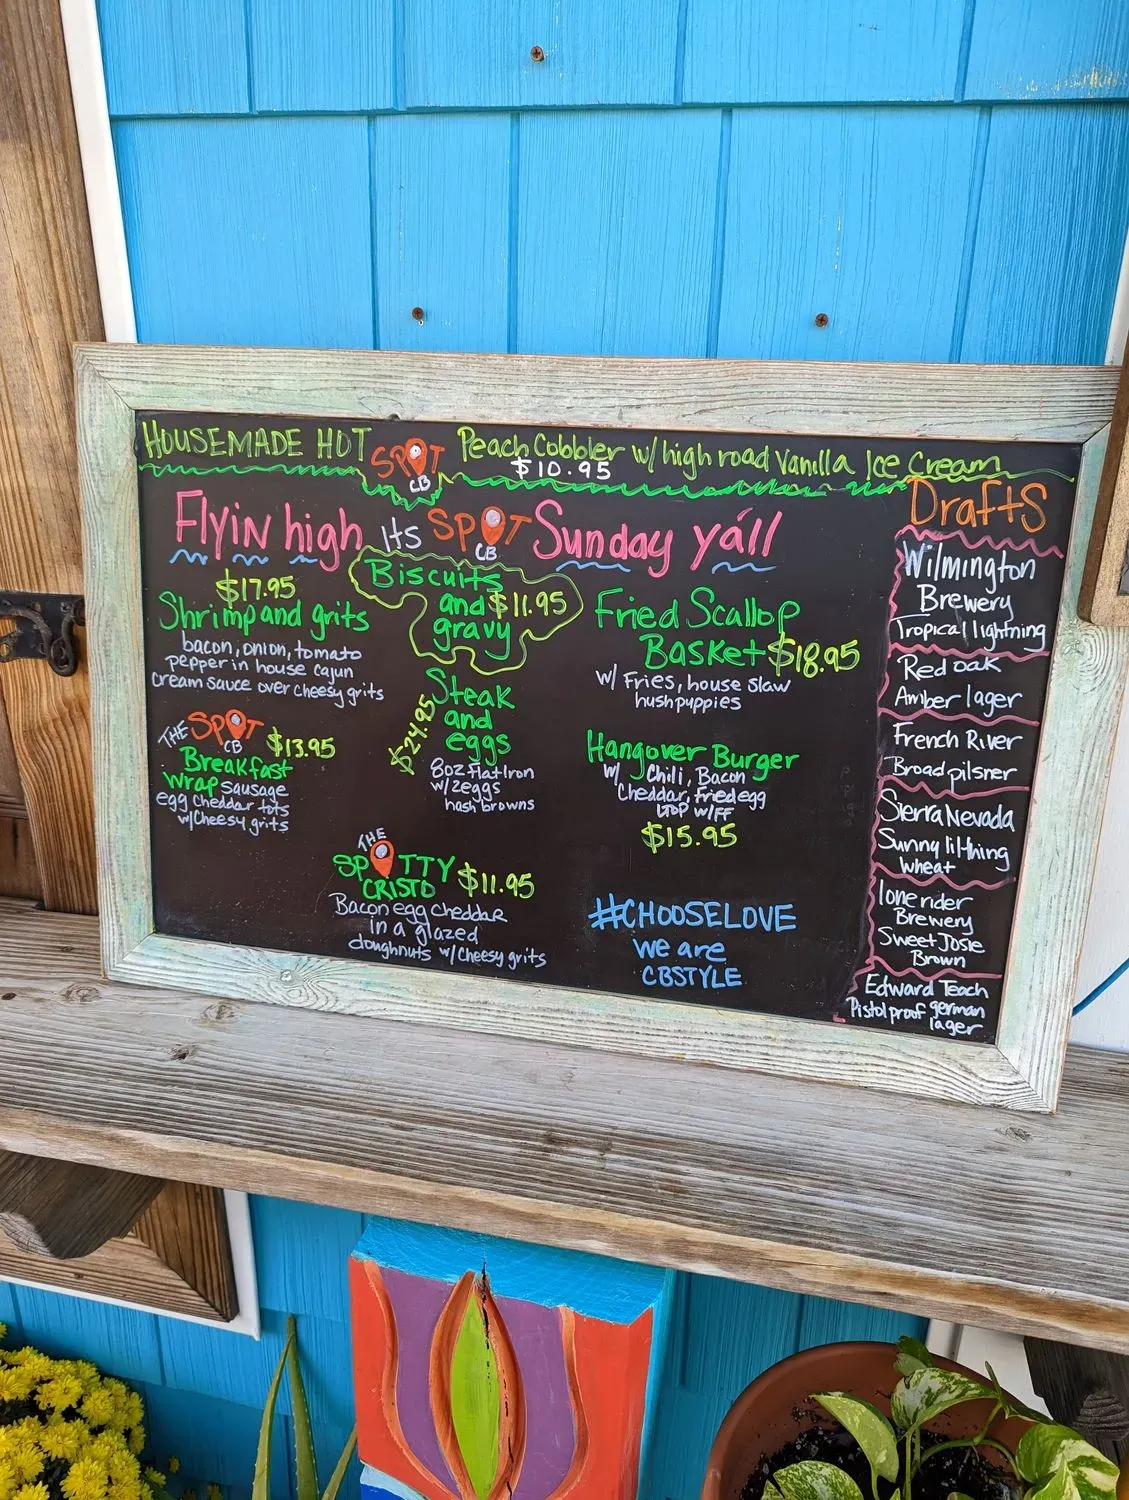 HOUSEMADE HOT SPOT CB Peach Cobbler w/high road Vanilla Ice Cream
$10.95
Flyin high its SPOT CB Sunday yáll
$17.95
Shrimp and grits
bacon, onion, tomato
pepper in house cajun
cream sauce over cheesy grits
THE SPOT CB $13.95
Breakfast
wrap sausage
egg cheddar tots
w/cheesy grits
Biscuits
and $11.95
gravy
Steak
and
eggs
$24.95
8oz flatiron
w/2eggs
hash browns
THE
SPOTTY
CRISTO $11.95
Bacon egg cheddar
in a glazed
doughnuts w/cheesy grits
Fried Scallop
Basket $18.95
w/ Fries, house slaw
hushpuppies
Hangover Burger
w/ Chili, Bacon
Cheddar, Fried egg
LTOP w/FF
$15.95
#CHOOSELOVE
we are
CBSTYLE
Drafts
Wilmington
Brewery
Tropical lightning
Red oak
Amber lager
French River
Broad pilsner
Sierra Nevada
Sunny lil thing
wheat
lonerider
Brewery
Sweet Josie
Brown
Edward Teach
Pistol proof german
lager